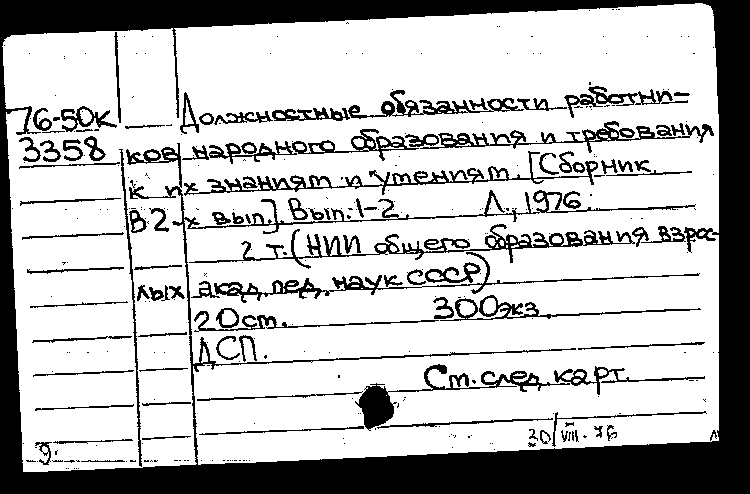 76-50к Должностные обязанности работни-
3358 ков народного образования и требования
к их знаниям и умениям. [Сборник.
В 2-х вып.]. Вып. 1-2. Л., 1976.
2 т. (НИИ общего образования взрос-
лых акад. пед. наук СССР).
20 см. 300 экз.
ДСП.
См. след. карт.
30/VIII-76
9.